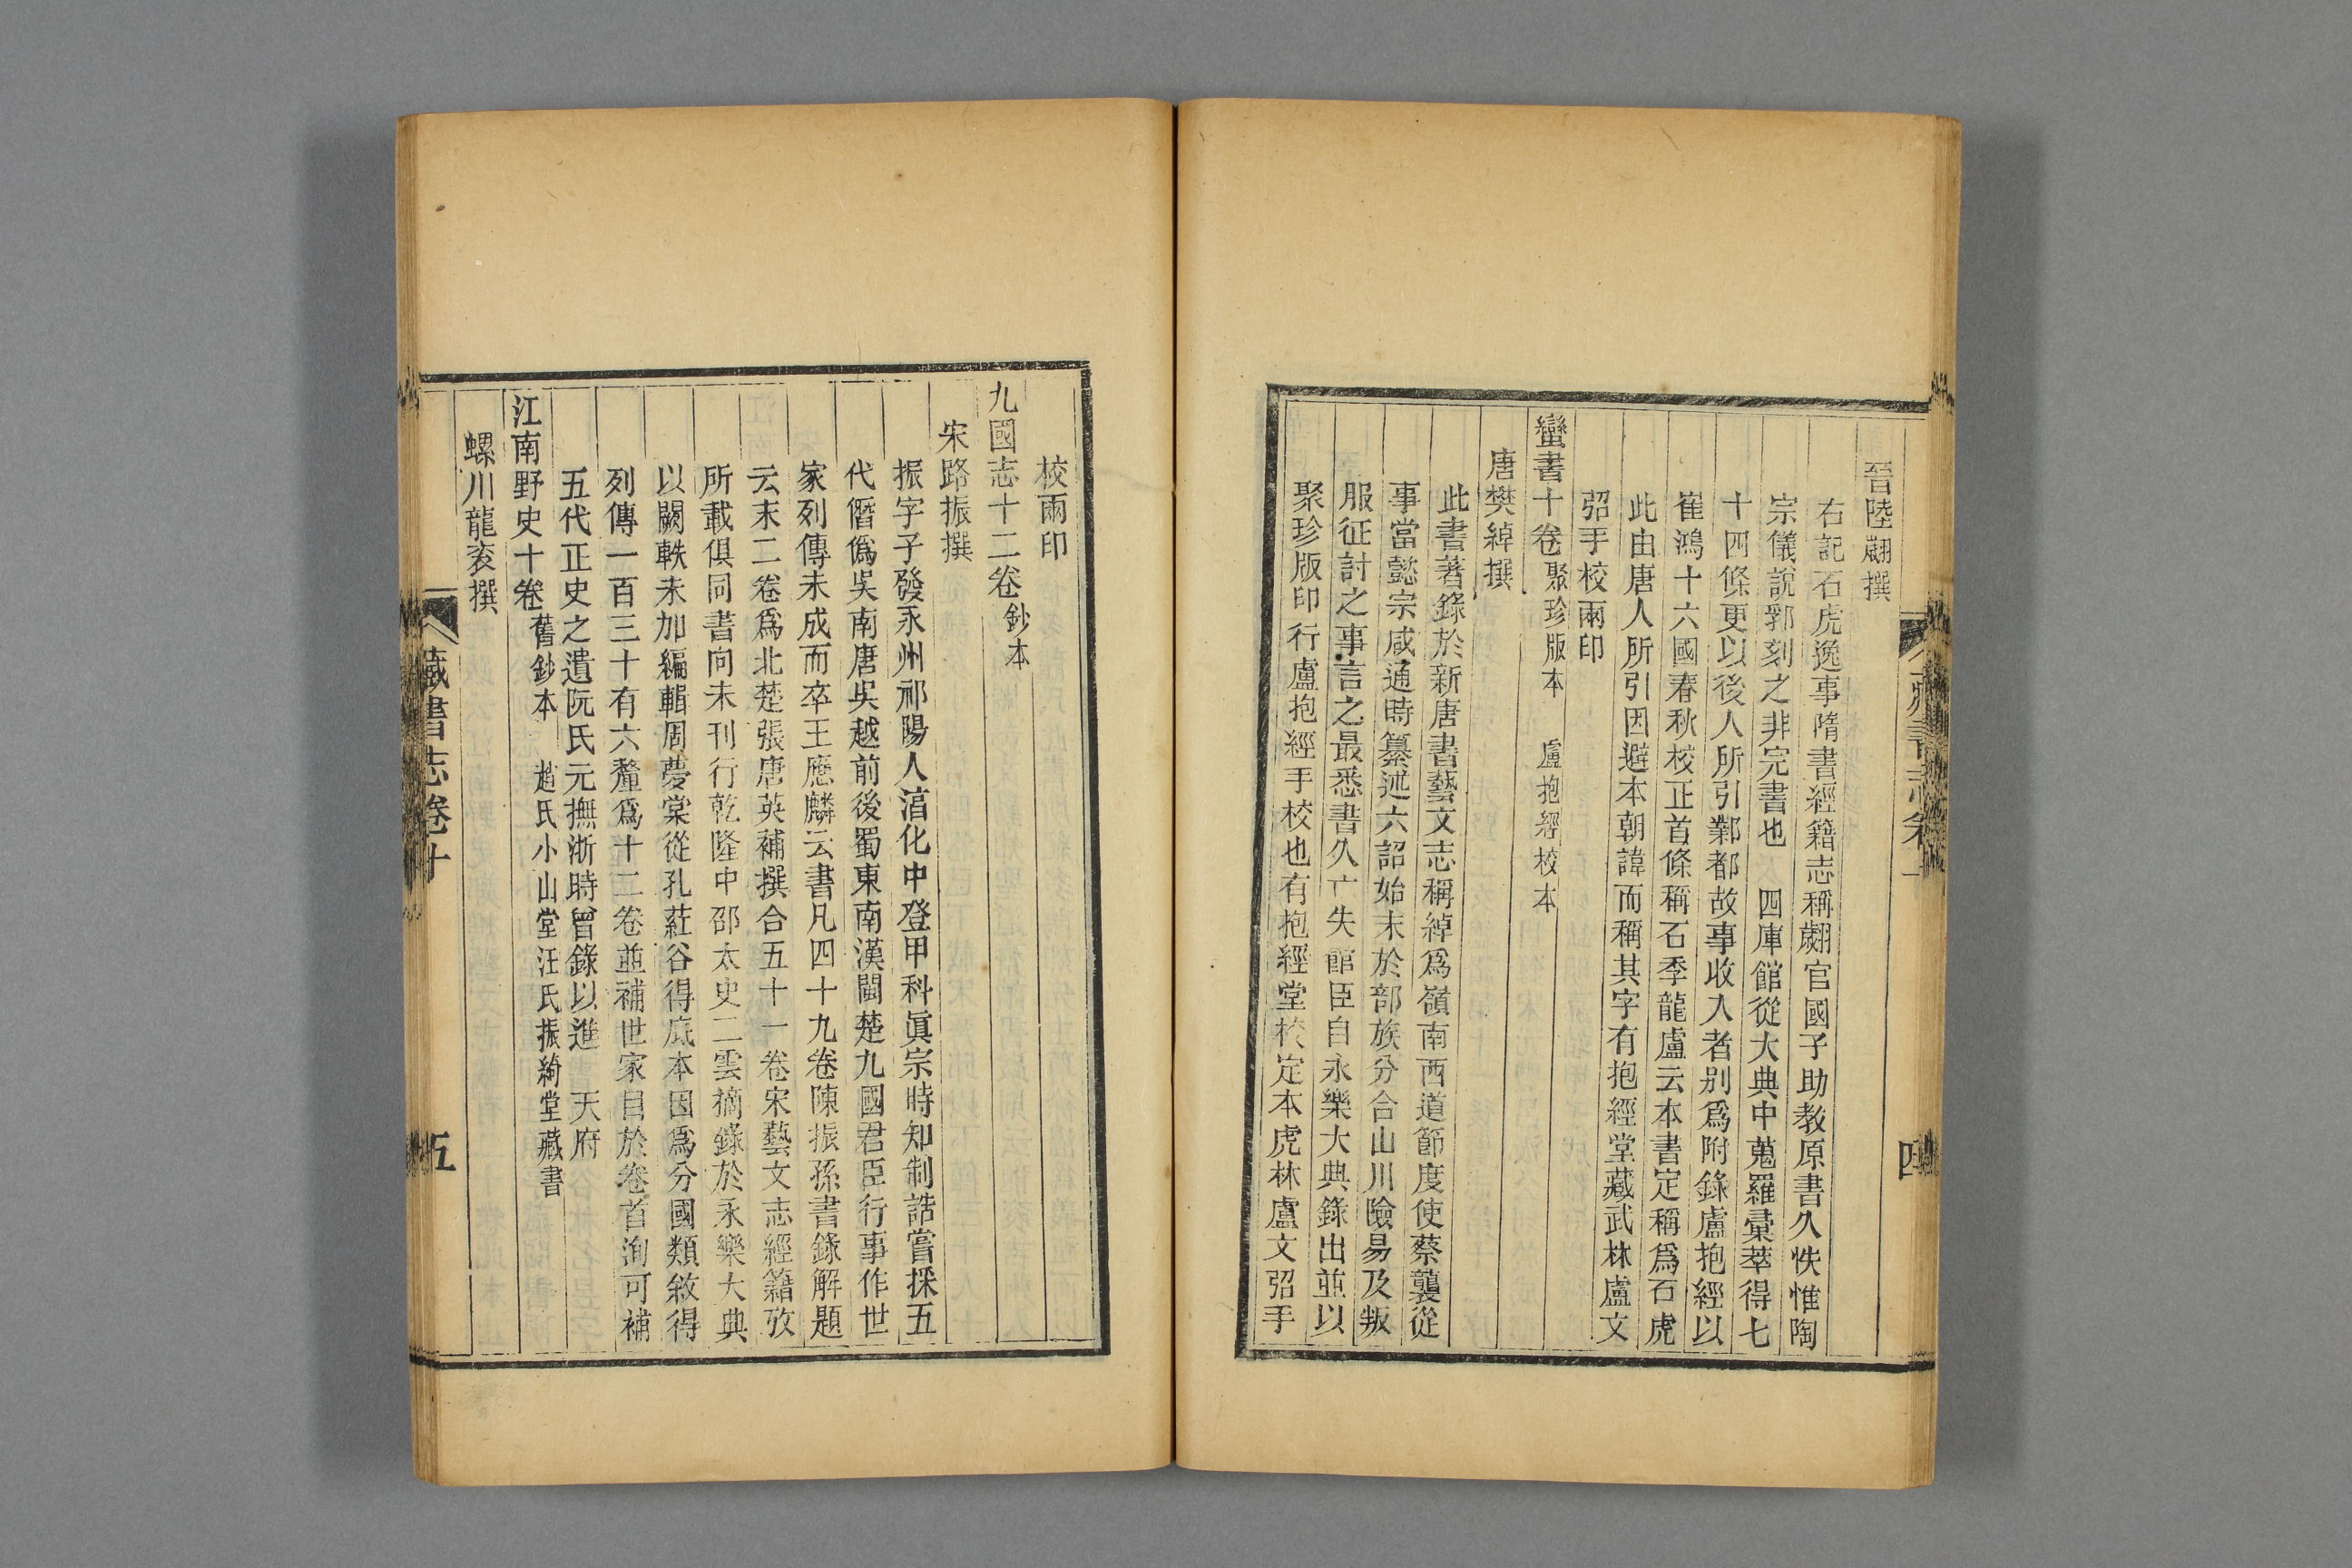 晉陸翽撰
右記石虎逸事隋書經籍志稱翽官國子助教原書久佚惟陶
宗儀說郛刻之非完書也　四庫館從大典中蒐羅彙萃得七
十四條更以後人所引鄴都故事收入者别爲附錄盧抱經以
崔鴻十六國春秋校正首條稱石季龍盧云本書定稱爲石虎
此由唐人所引因避本朝諱而稱其字有抱經堂藏武林盧文
弨手校兩印
蠻書十卷聚珍版本　盧抱經校本
唐樊綽撰
此書著錄於新唐書藝文志稱綽爲嶺南西道節度使蔡襲從
事當懿宗咸通時纂述六詔始末於部族分合山川險易及叛
服征討之事言之最悉書久亡失館臣自永樂大典錄出並以
聚珍版印行盧抱經手校也有抱經堂校定本虎林盧文弨手
四
校兩印
九國志十二卷鈔本
宋路振撰
振字子發永州祁陽人湻化中登甲科眞宗時知制誥嘗採五
代僭僞吳南唐吳越前後蜀東南漢閩楚九國君臣行事作世
家列傳未成而卒王應麟云書凡四十九卷陳振孫書錄解題
云末二卷爲北楚張唐英補撰合五十一卷宋藝文志經籍攷
所載俱同書向未刊行乾隆中邵太史二雲摘錄於永樂大典
以闕軼未加編輯周夢棠從孔葒谷得底本因爲分國類敘得
列傳一百三十有六釐爲十二卷並補世家目於卷首洵可補
五代正史之遺阮氏元撫浙時曾錄以進　天府
江南野史十卷舊鈔本　趙氏小山堂汪氏振綺堂藏書
螺川龍袞撰
藏書志卷十
五